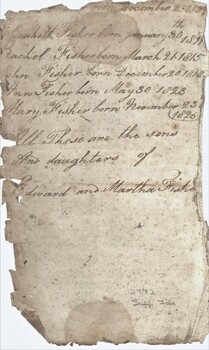 born December 2
Elizabeth Fisher born January 30th
Rachel Fisher born March 21 1815
John Fisher born December 20 1818
Ann Fisher born May 30 1823
Mary Fisher born November
All These are the sons
And daughters of
Edward and Martha Fishe